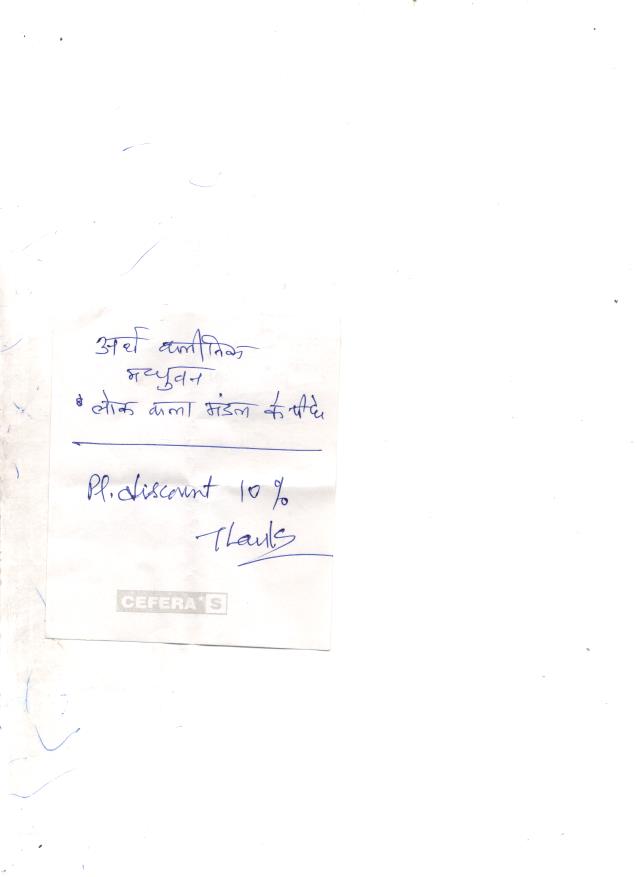 अर्थ क्लीनिक
मधुवन
लोक कला मंडल के पीछे
Pl. discount 10%
Thanks
CEFERA*S